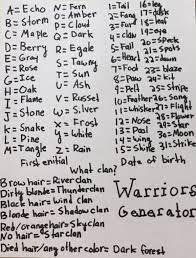 A=Echo
B=Storm
C=Maple
D=Berry
E=Grey
F=Rose
G=Ice
H=Oak
I=Flame
J=Stone
K=Snake
L=Pine
M=Tangle
N=Fern
O=Amber
P=Cloud
Q=Dark
R=Egale
S=Fawn
T=Sun
U=Ash
V=Russel
W=Silver
X=Frost
Y=White
Z=Rain
First enitial
1=Tail
2=Fall
3=claw
4=Star
5=Stripe
6=Heart
7=Foot
8=Paw
9=Pelt
10=Feather
11=Whisker
12=Nose
13=Shade
14=Wing
15=Flight
16=leg
17=
18=clawn
19=skip
20=Speck
21=Spots
22=dawn
23=blaze
24=kit
25=
26=Whisper
27=Light
28=Flower
29=Shar
30=Moon
31=Sky
Date of birth
What clan?
Brow hair=Riverclan
Dirty blonde=Thunderclan
Black hair=wind clan
Blonde hair=Shadowclan
Red/orange hair=Skyclan
No hair=Starclan
Died hair/any other color=Dark forest
Warriors
Generator